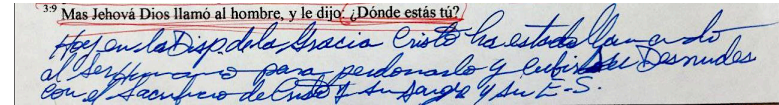 3:9 Mas Jehová Dios llamó al hombre, y le dijo: ¿Dónde estás tú?
Hoy en la Disp. de la Gracia Cristo ha estado llamando
al Ser Humano para perdonarlo y cubrir su Desnudes
con el Sacrificio de Cristo y su Sangre y Su E-S.